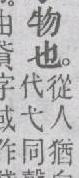 物也。
從人猶
代弋同
字或作